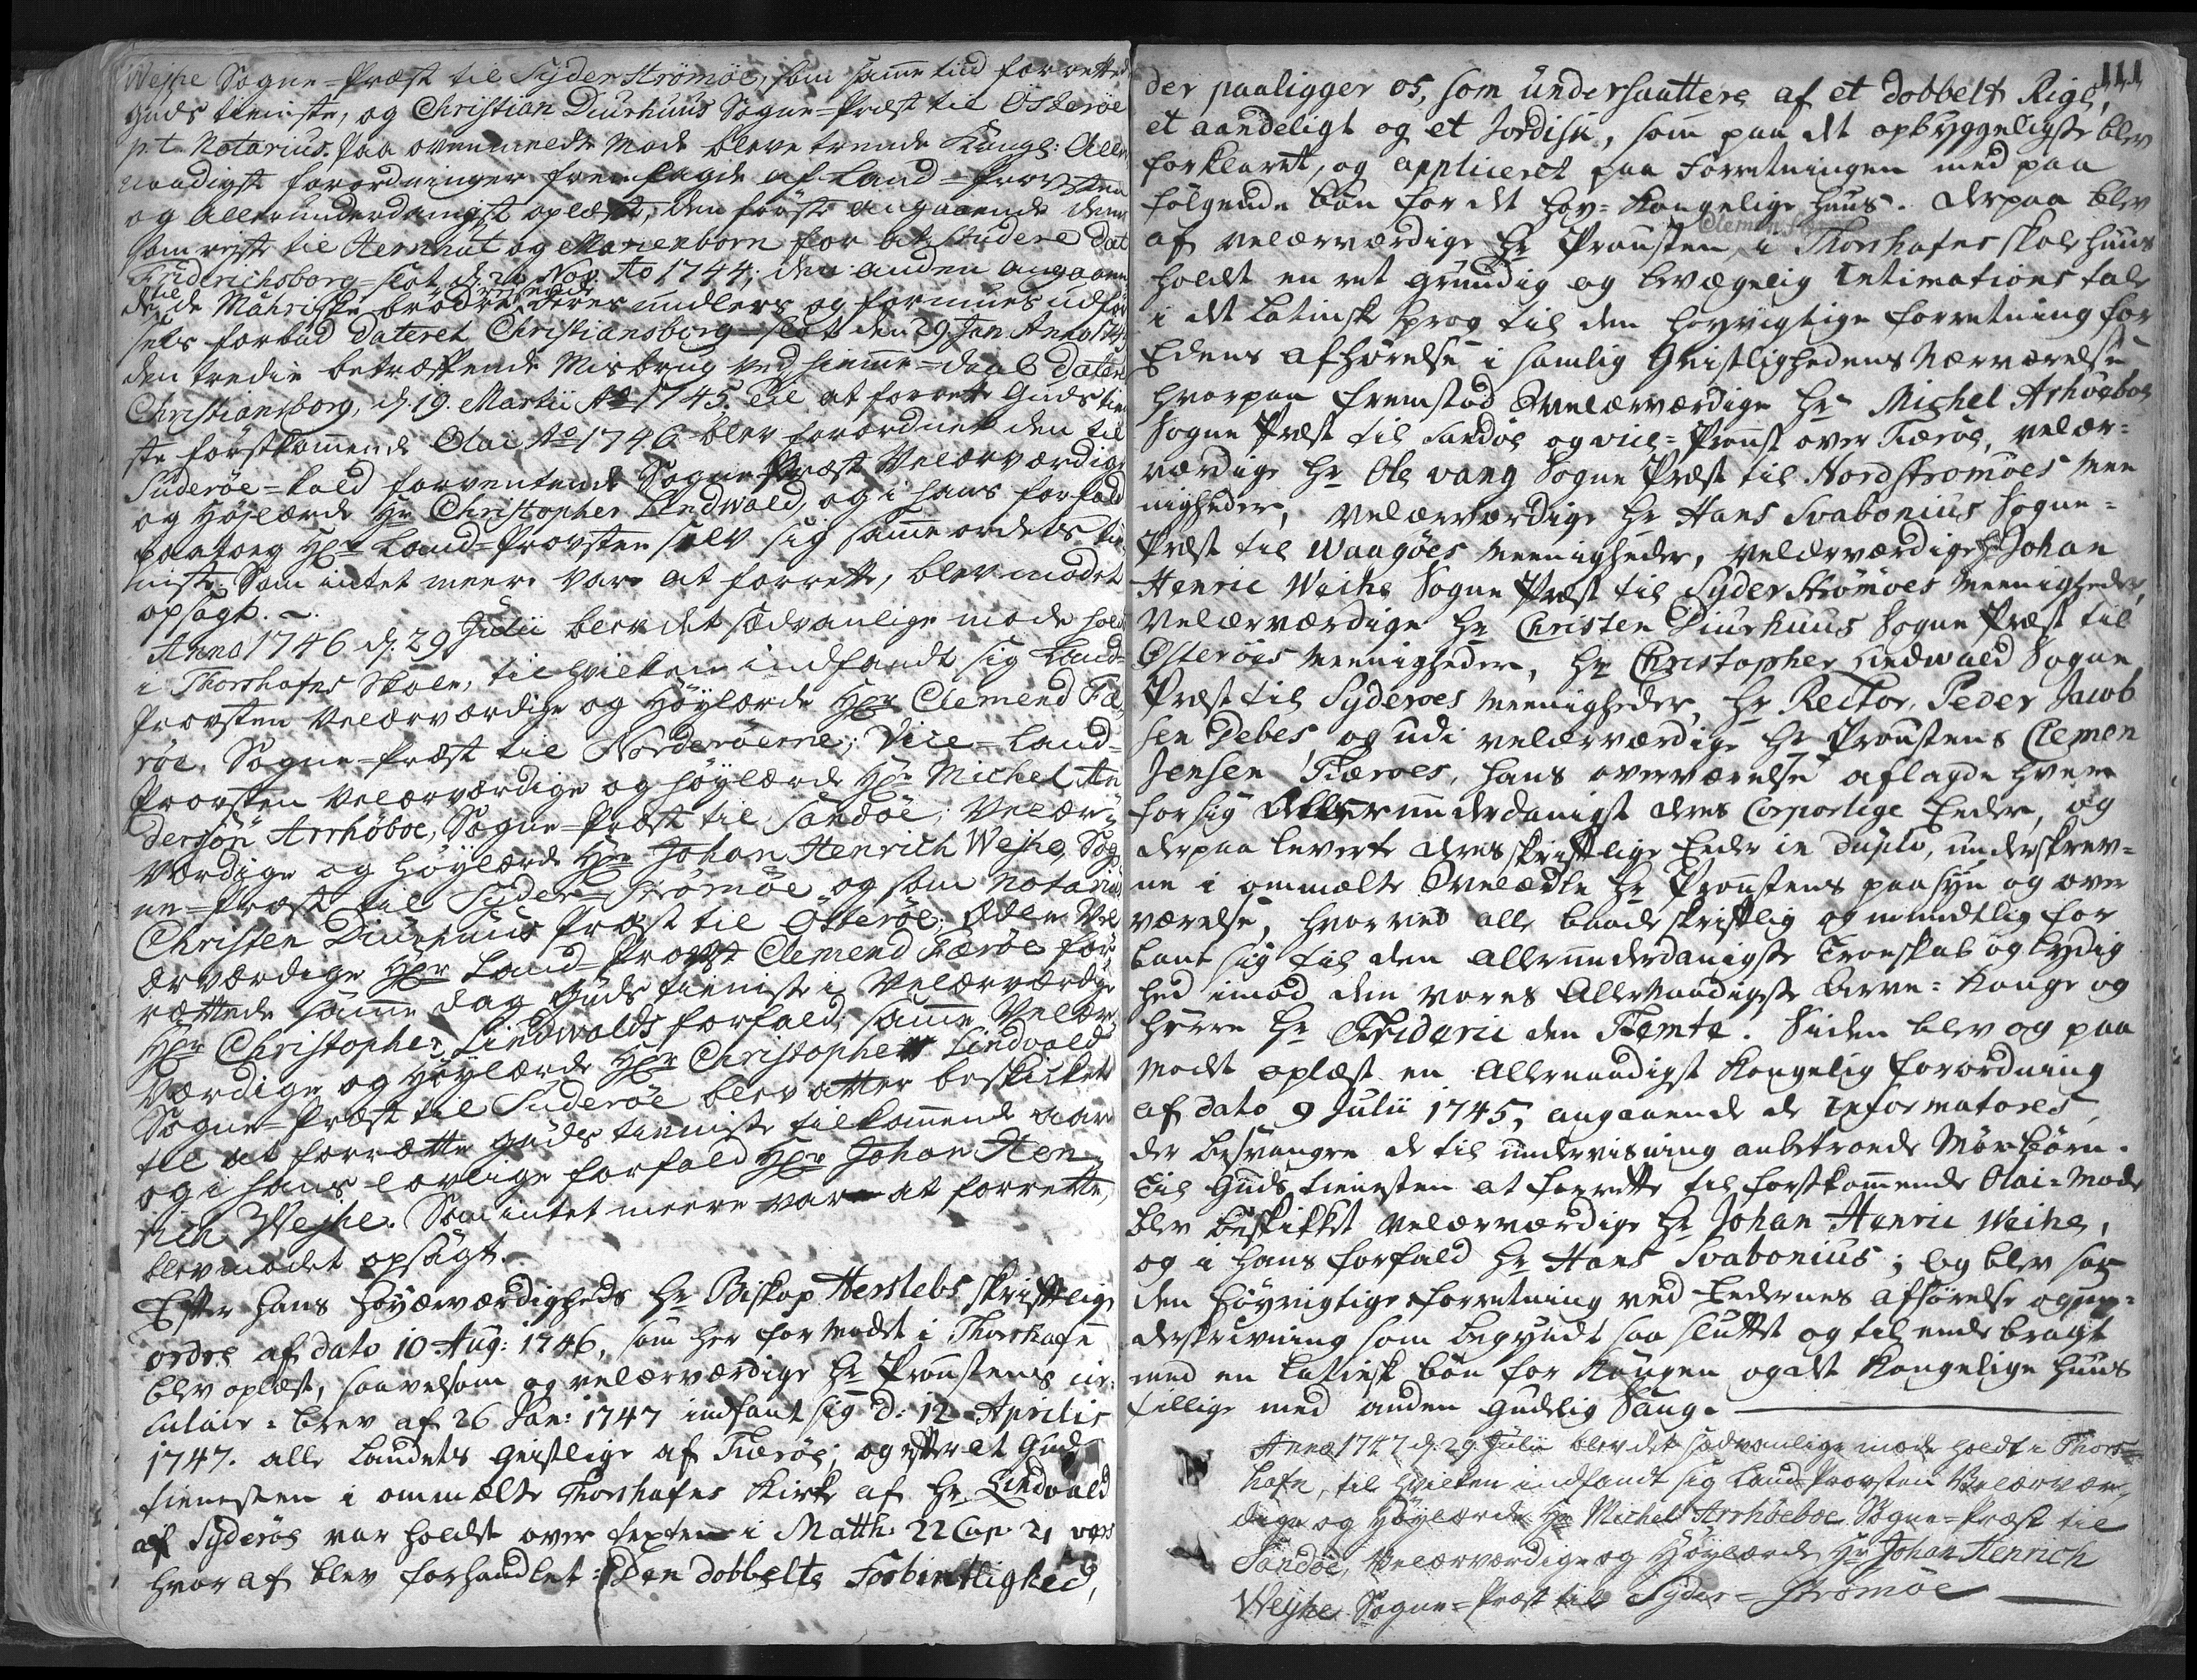 Wejhe Sogne=Præst til Syderströmöe, som samme tiid forrettede
Guds tieniste, og Christian Diurhuus Sogne=Præst til Österöe
p.t. Notarius. Paa ovenmeldte Mode bleve trende Kongl: Aller
naadigste forordninger fremsagde af Land=Provsten
og allerunderdanigst oplæst, den förste angaaende dem
som rejste til Hernhut og Marienborn for at studere Dat
Friderichsborg=slot d. 20 Nov. Ao 1744; den anden angaaen
de de til Mähriske brödre deres midlers og formues udför
sels forbud Dateret Christiansborg=slot den 29 Jan. Anno 174
den tredie betræffende Misbrug ved hiemme=daab Dater
Christiansborg, d. 19. Martii Ao 1745. Til at forrette Guds tieni
ste förstkommende Olai Ao 1746 blev forordnet den til
Suderöe=kald forventende Sogne Præst Velærværdige
og Höjlærde Hr Christopher Lindwald, og i hans forfald
paatoeg Hr Land=Provsten selv sig samme ordets tie
niste. Som intet meere vare at forrette, blev modet
opsagt.
Anno 1746 d. 29 Julii blev det sædvanlige mode hold
i Thorshafns Skole, til hvilken indfandt sig Land=
Provsten Velærværdige og Höylærde Hr Clemend Fæ
röe. Sogne=Præst til Norderöerne; Vice=Land=
Provsten Velærværdige og höylærde Hr Michel An
dersön Arrhöboe, Sogne=Præst til Sandöe; Velær=
værdige og Höylærde Hr Johan Henrich Wejhe Sog
ne=Præst til Syder=Strömöe og som Notarius
Christen Diurhuus Præst til Österöe; Ædle Vel
ærværdige Hr Land=Provst Clemend Færöe for
rættede samme dag Guds tieniste i Velærværdige
Hr Christopher Lindwalds forfald; samme Velær
værdige og Höylærde Hr Christopher Lindvald
Sogne=Præst til Suderöe blev atter beskikket
til at forrætte Guds tieniste tilkommende aar
og i hans lovlige forfald Hr Johan Hen
rich Wejhe. Som intet meere var at forrette,
blev modet opsagt.
Efter hans Höyærværdigheds Hr Biskop Herslebs skriftlige
ordre af dato 10 Aug: 1746, som her for modet i Thorshafn
blev oplæst, saavelsom og velærværdige Hr Proustens cir=
culair=brev af 26 Jan: 1747 indfant sig d: 12 Aprilis
1747. alle Landets Geistlige af Færöe; og efter at Guds
tienesten i ommælte Thorshafns Kirke af Hr Lindvald
af Syderöe var holdt over texten i Matth: 22 Cap 21 vers
hvoraf blev forhandlet: Den dobbelte Forbintlighed,
111
der paaligger os, som undersaattere af et dobbelt Rige,
et aandeligt og et Jordisk, som paa det opbyggeligste blev
forklaret, og appliceret paa Forretningen med paa
fölgende bön for det Hoy=Kongelige Huus. Derpaa blev
af velærværdige Hr Prousten i Thorshafns skolehuus
holdt en ret grundig og bevægelig Intimations tale
i det Latinsk sprog til den höyvigtige forretning for
Edens afhörelse i samtlig Geistlighedens Nærværelse
hvorpaa fremstod Velærværdige Hr Michel Arhöeboe
Sogne Præst til Sandöe og vice=Proust over Færöe, velær=
værdige Hr Ole vang Sogne Præst til Nordstromöes mee
nigheder, velærværdige Hr Hans Svabonius Sogne=
Præst til Waagöes meenigheder, velærværdige Hr Johan
Henric Weihe Sogne Præst til Syderströmoes meenigheder,
Velærværdige Hr Christen Diurhuus Sogne Præst til
Østeröes meenigheder, Hr Christopher Lindwald Sogne
Præst til Syderoes meenigheder, Hr Rector, Peder Jacob
sen Debes, og udi velærværdige Hr Proustens Clemen
Jensen Færoes, hans overværelse aflagde hver
for sig Allerunderdanigst deres Corporlige Eeder, og
derpaa leverte deres skriftlige Eeder in duplo, underskrev=
ne i ommælte Velædle Hr Proustens paasyn og over
værelse, hvorved alle baade skriftlig og mundtlig for
bant sig til den allerunderdanigste Troeskab og lydig
hed imod den vores Allernaadigste Arve=Konge og
Herre Hr Frideric den Femte. Siden blev og paa
modet oplæst en Allernaadigst Kongelig forordning
af dato 9 Julii 1745, angaaende de Informatores,
der besvangre de til underviisning anbetroede Mörbörn.
Til Guds tienesten at forrette til förstkommende Olai=Mode
blev beskikket velærværdige Hr Johan Henric Weihe,
og i hans forfald Hr Hans Svabonius; og blev saa
den Höyvigtige forretning ved Eedernes afhörelse og un=
derskrivning som begyndt saa sluttet og til ende bragt
med en Latinsk bön for Kongen og det Kongelige Huus
tillige med anden Gudelig Sang.
Anno 1747 d. 29. Julii blev det sædvanlige mode holdt i Thors=
hafn, til hvilken indfandt sig Land=Provsten Velærvær=
dige og Höylærde Hr Michel Arrhöeboe Sogne=Præst til
Sandöe, Velærværdige og Höylærde Hr Johan Henrich
Weyhe Sogne=Præst til Syder=Strömöe